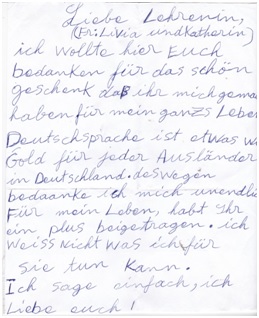 Liebe Lehrenin,
(Fr: Livia und Katherin)
ich wollte hier Euch
bedanken für das schön
geschenk daß ihr mich gema
haben für mein ganzs Leben
Deutschsprache ist etwas w
Gold für jeder Ausländer
in Deutschland. deswegen
bedaanke ich mich unendli
Für mein Leben, habt Ihr
ein plus beigetragen. ich
weiss nicht was ich für
sie tun kann.
Ich sage einfach, ich
Liebe euch!